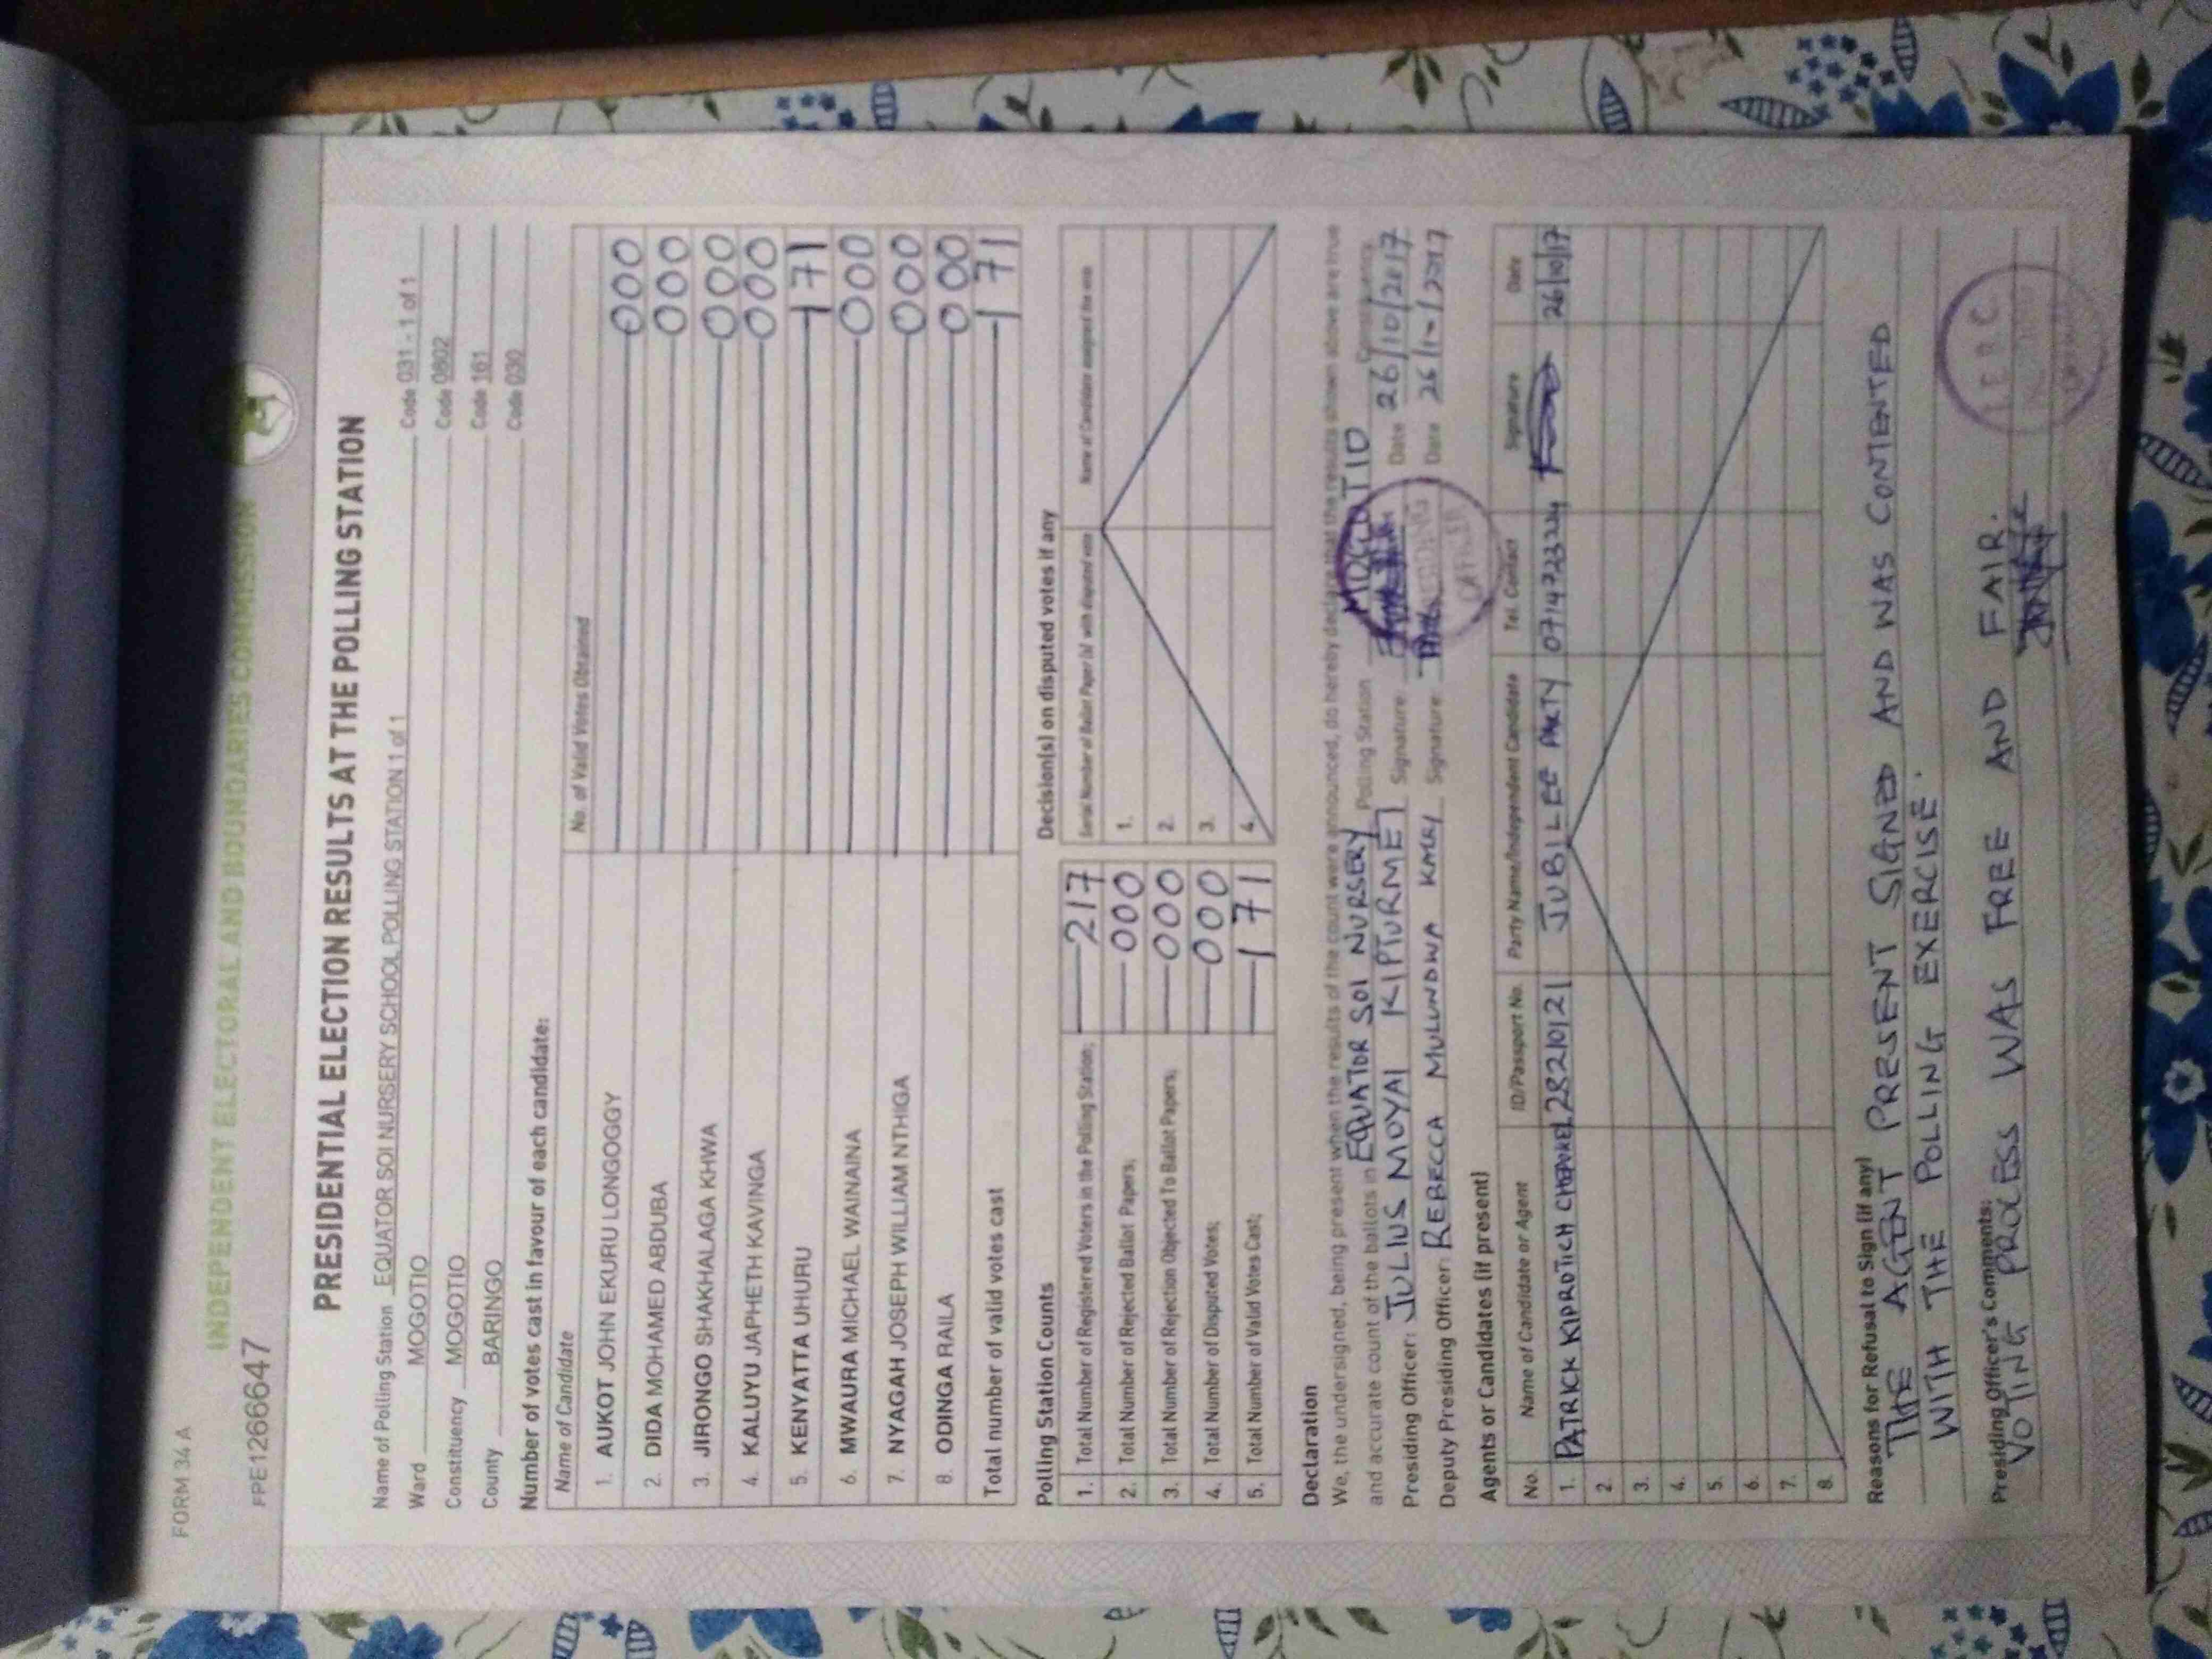 FORM 34 A
INDEPENDENT ELECTORAL AND BOUNDARIES COMMISSION
FPE1266647
PRESIDENTIAL ELECTION RESULTS AT THE POLLING STATION
Name of Polling Station EQUATOR SOI NURSERY SCHOOL POLLING STATION 1 of 1 Code 031 - 1 of 1
Ward MOGOTIO Code 0802
Constituency MOGOTIO Code 161
County BARINGO Code 030
Number of votes cast in favour of each candidate:
Name of Candidate No. of Valid Votes Obtained
1. AUKOT JOHN EKURU LONGOGGY 000
2. DIDA MOHAMED ABDUBA 000
3. JIRONGO SHAKHALAGA KHWA 000
4. KALUYU JAPHETH KAVINGA 000
5. KENYATTA UHURU 171
6. MWAURA MICHAEL WAINAINA 000
7. NYAGAH JOSEPH WILLIAM NTHIGA 000
8. ODINGA RAILA 000
Total number of valid votes cast 171
Polling Station Counts
1. Total Number of Registered Voters in the Polling Station; 217
2. Total Number of Rejected Ballot Papers; 000
3. Total Number of Rejection Objected To Ballot Papers; 000
4. Total Number of Disputed Votes; 000
5. Total Number of Valid Votes Cast; 171
Decision(s) on disputed votes if any
Serial Number of Ballot Paper (s) with disputed vote Name of Candidate assigned the vote
1.
2.
3.
4.
Declaration
We, the undersigned, being present when the results of the count were announced, do hereby declare that the results shown above are true
and accurate count of the ballots in EQUATOR SOI NURSERY Polling Station MOGOTIO Constituency.
Presiding Officer: JULIUS MOYAI KIPTURMET Signature Date 26/10/2017
Deputy Presiding Officer: REBECCA MULUNDWA Signature Date
PRESIDING OFFICER
Agents or Candidates (if present)
No. Name of Candidate or Agent ID/Passport No. Party Name/Independent Candidate Tel. Contact Signature Date
1. PATRICK KIPROTICH 28210121 JUBILEE PARTY 26/10/17
2.
3.
4.
5.
6.
7.
8.
Reasons for Refusal to Sign (if any)
THE AGENT PRESENT SIGNED AND WAS CONTENTED
WITH THE POLLING EXERCISE.
Presiding Officer's Comments:
VOTING PROCESS WAS FREE AND FAIR.
IEBC